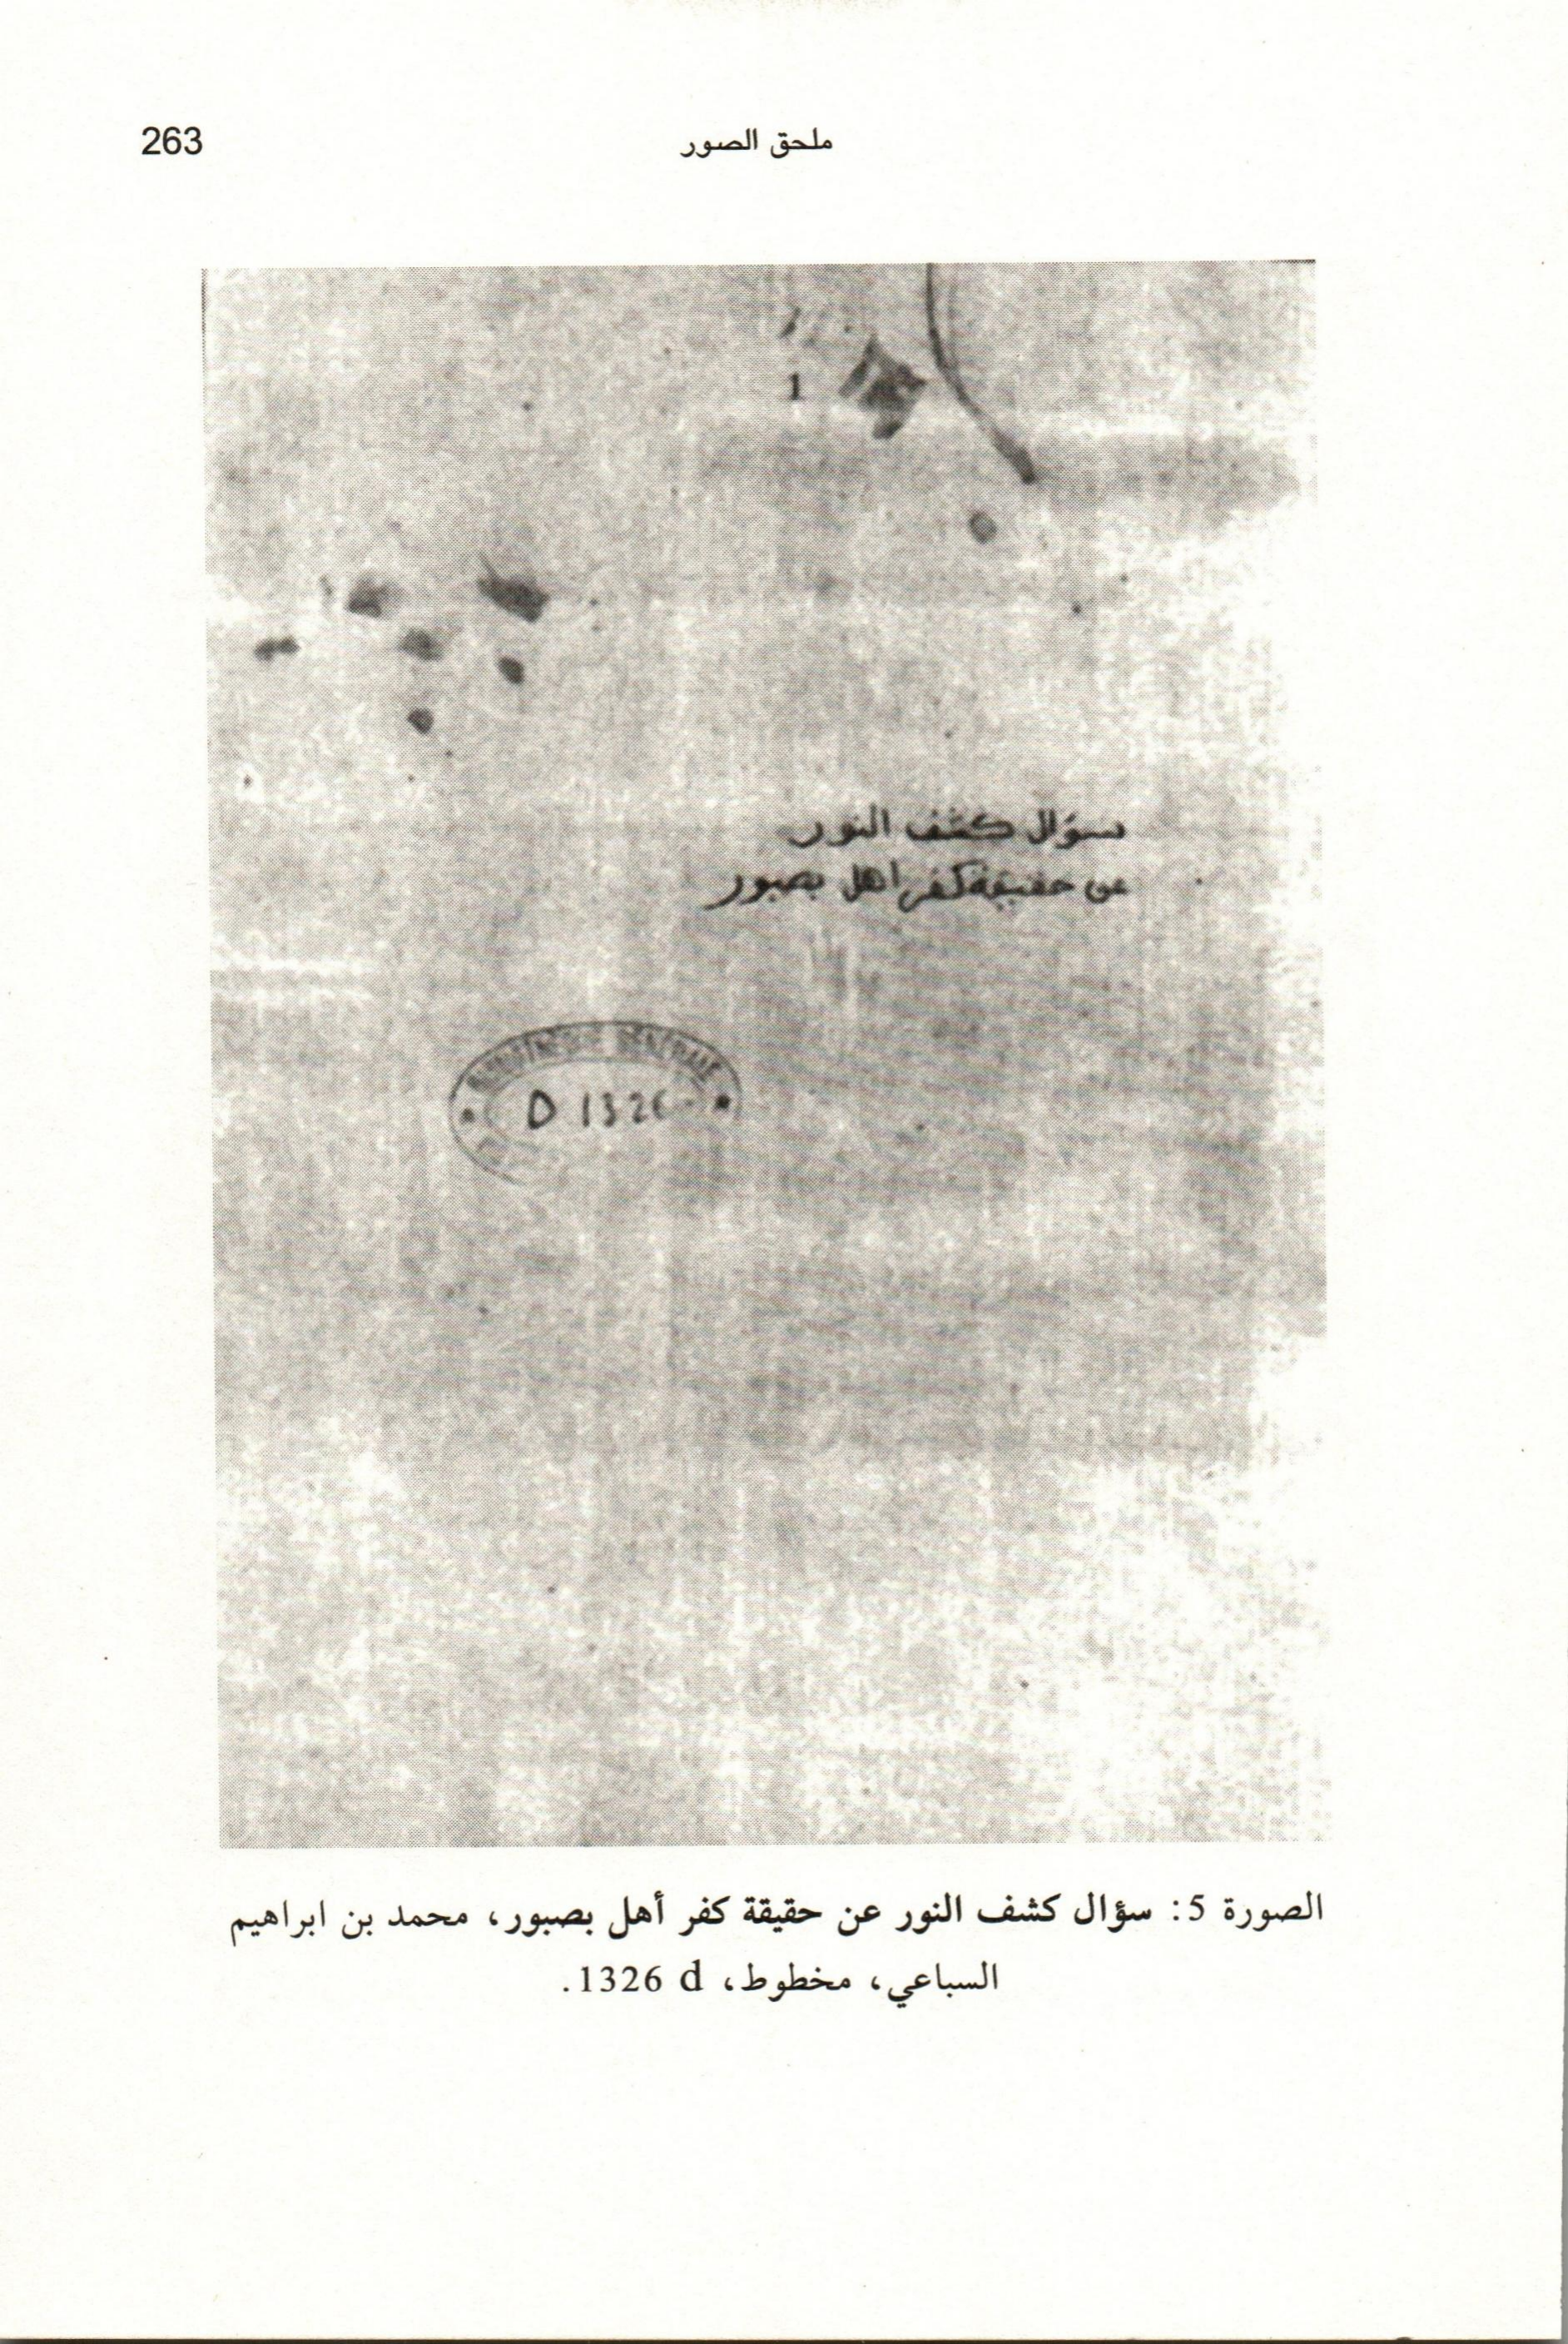 ملحق الصور
263
1
سؤال كشف النور
عن حقيقة كفر اهل بصبور
BIBLIOTHEQUE GENERALE
D 1326
الصورة 5: سؤال كشف النور عن حقيقة كفر أهل بصبور، محمد بن ابراهيم
السباعي، مخطوط، 1326 d.